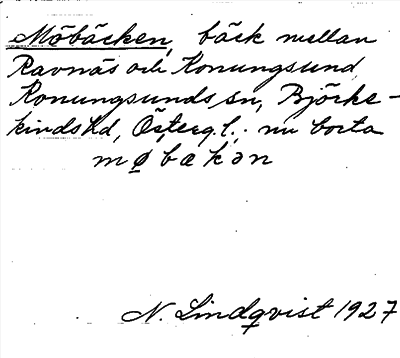 Möbäcken, bäck mellan
Ravnäs och Konungsund,
Konungsunds sn, Björke-
kinds hd, Österg.l.. nu borta
møbakən
N. Lindqvist 1927